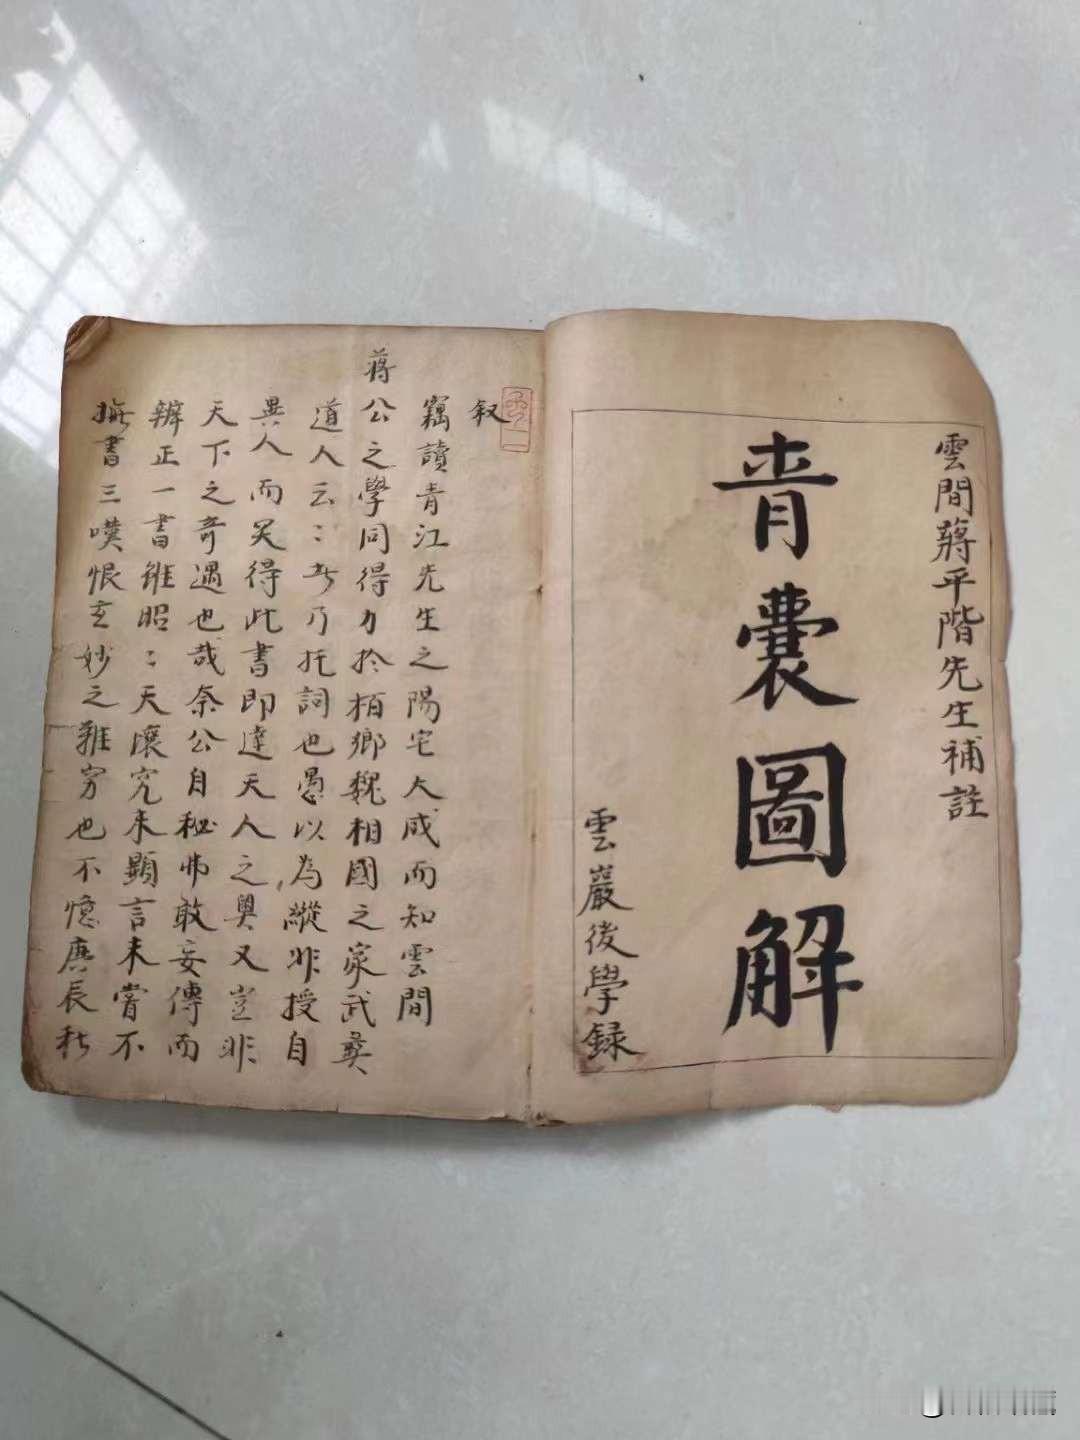 雲間蔣平階先生補註
青囊圖解
雲巖後學録
叙
竊讀青江先生之陽宅大成而知雲間
蔣公之學同得力於栢鄉魏相國之家武彛
道人云〻此乃托詞也愚以為縱非授自
異人而突得此書即達天人之奧又豈非
天下之奇遇也哉奈公自秘弗敢妄傳而
辨正一書雖昭〻天壤究未顯言未嘗不
撫書三嘆恨玄妙之難穷也不憶庚辰秋